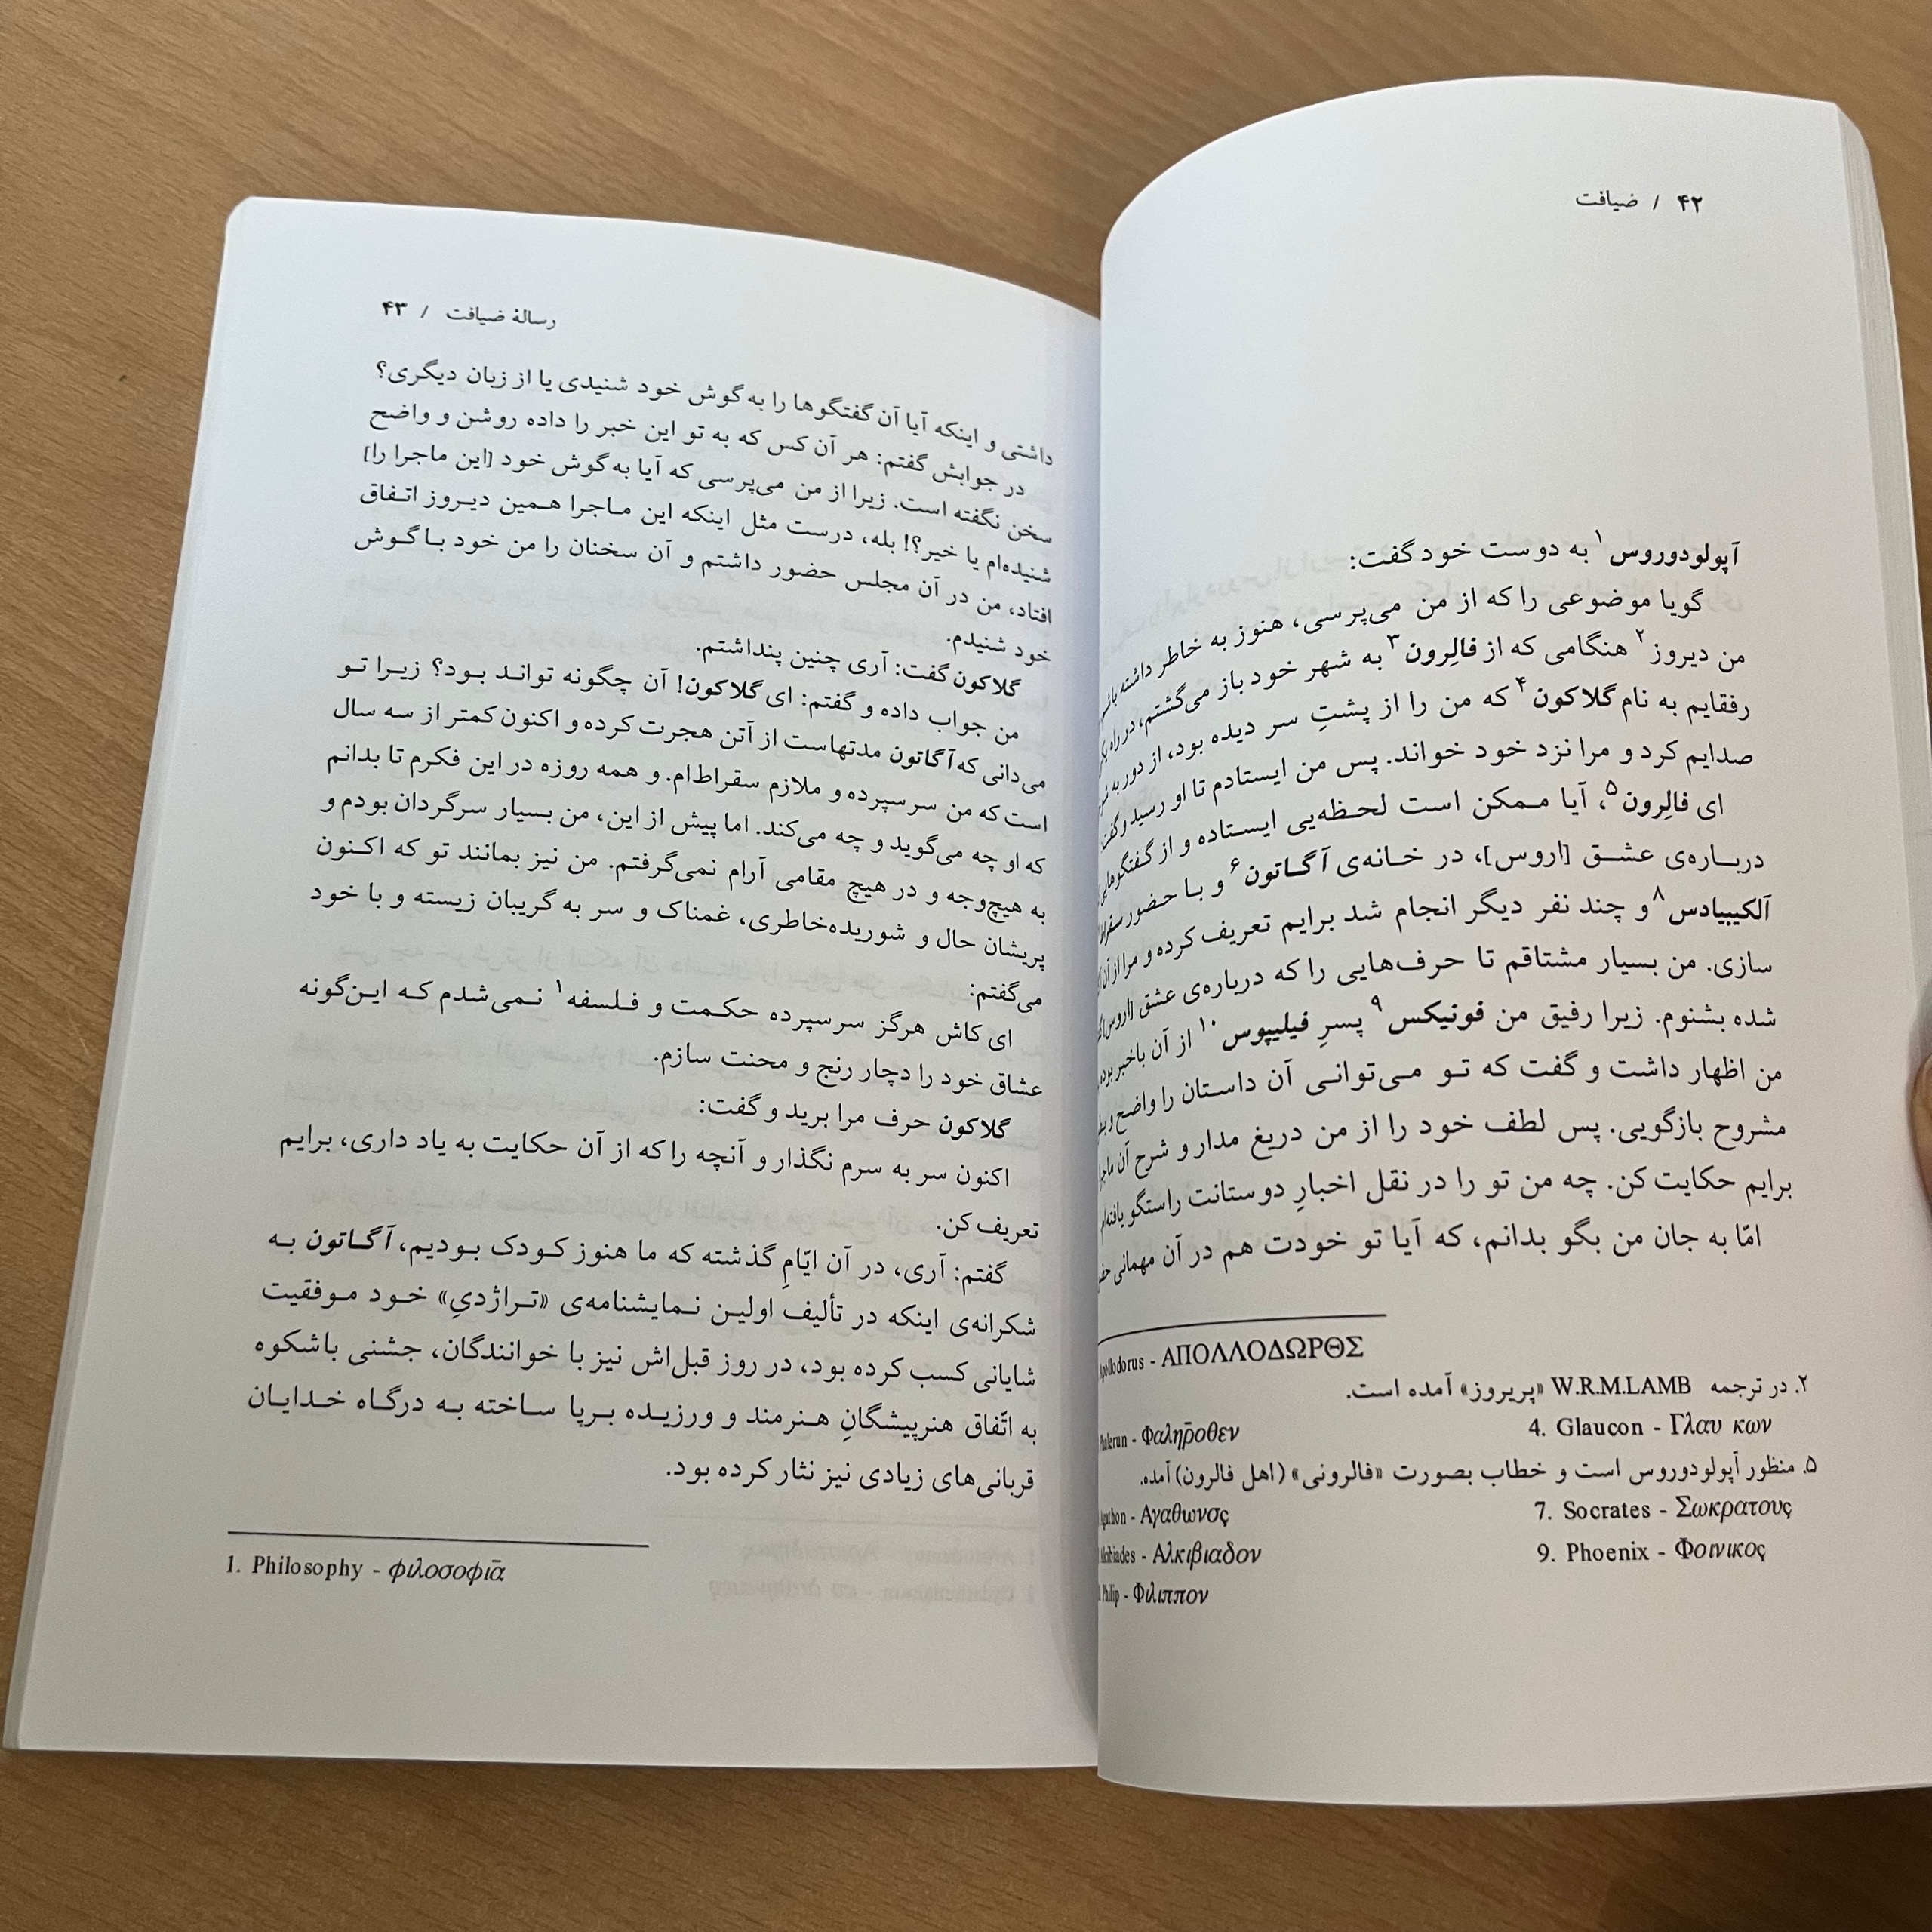 ۴۲ / ضیافت
آپولودوروس۱ به دوست خود گفت:
گویا موضوعی را که از من می‌پرسی، هنوز به خاطر داشته باشم
من دیروز۲ هنگامی که از فالِرون۳ به شهر خود باز می‌گشتم، در راه یکی
رفقایم به نام گلاکون۴ که من را از پشتِ سر دیده بود، از دور به
صدایم کرد و مرا نزد خود خواند. پس من ایستادم تا او رسید و گفت
ای فالِرون۵، آیا ممکن است لحظه‌یی ایستاده و از گفتگوهایی
درباره‌ی عشق [اروس]، در خانه‌ی آگاتون۶ و با حضور سقراط
آلکیبیادس۸ و چند نفر دیگر انجام شد برایم تعریف کرده و مرا از آن
سازی. من بسیار مشتاقم تا حرف‌هایی را که درباره‌ی عشق [اروس]
شده بشنوم. زیرا رفیق من فونیکس۹ پسرِ فیلیپوس۱۰ از آن باخبر بوده
من اظهار داشت و گفت که تو می‌توانی آن داستان را واضح و
مشروح بازگویی. پس لطف خود را از من دریغ مدار و شرح آن ماجرا
برایم حکایت کن. چه من تو را در نقل اخبارِ دوستانت راستگو یافته‌ام
امّا به جان من بگو بدانم، که آیا تو خودت هم در آن مهمانی
Apollodorus - ΑΠΟΛΛΟΔΩΡΘΣ
۲. در ترجمه W.R.M.LAMB «پریروز» آمده است.
Phalerun - Φαληρ̄οθεν
4. Glaucon - Γλαυ κων
۵. منظور آپولودوروس است و خطاب بصورت «فالرونی» (اهل فالرون) آمده.
Agathon - Αγαθωνσς
7. Socrates - Σωκρατους
Alcibiades - Αλκιβιαδον
9. Phoenix - Φοινικος
Philip - Φιλιππον
رسالهٔ ضیافت / ۴۳
داشتی و اینکه آیا آن گفتگوها را به گوش خود شنیدی یا از زبان دیگری؟
در جوابش گفتم: هر آن کس که به تو این خبر را داده روشن و واضح
سخن نگفته است. زیرا از من می‌پرسی که آیا به گوش خود [این ماجرا را]
شنیده‌ام یا خیر؟! بله، درست مثل اینکه این ماجرا همین دیروز اتفاق
افتاد، من در آن مجلس حضور داشتم و آن سخنان را من خود با گوش
خود شنیدم.
گلاکون گفت: آری چنین پنداشتم.
من جواب داده و گفتم: ای گلاکون! آن چگونه تواند بود؟ زیرا تو
می‌دانی که آگاتون مدتهاست از آتن هجرت کرده و اکنون کمتر از سه سال
است که من سرسپرده و ملازم سقراط‌ام. و همه روزه در این فکرم تا بدانم
که او چه می‌گوید و چه می‌کند. اما پیش از این، من بسیار سرگردان بودم و
به هیچ‌وجه و در هیچ مقامی آرام نمی‌گرفتم. من نیز بمانند تو که اکنون
پریشان حال و شوریده‌خاطری، غمناک و سر به گریبان زیسته و با خود
می‌گفتم:
ای کاش هرگز سرسپرده حکمت و فلسفه۱ نمی‌شدم که این‌گونه
عشاق خود را دچار رنج و محنت سازم.
گلاکون حرف مرا برید و گفت:
اکنون سر به سرم نگذار و آنچه را که از آن حکایت به یاد داری، برایم
تعریف کن.
گفتم: آری، در آن ایّامِ گذشته که ما هنوز کودک بودیم، آگاتون به
شکرانه‌ی اینکه در تألیف اولین نمایشنامه‌ی «تراژدیِ» خود موفقیت
شایانی کسب کرده بود، در روز قبل‌اش نیز با خوانندگان، جشنی باشکوه
به اتّفاق هنرپیشگانِ هنرمند و ورزیده برپا ساخته به درگاه خدایان
قربانی‌های زیادی نیز نثار کرده بود.
1. Philosophy - φιλοσοφιᾱ